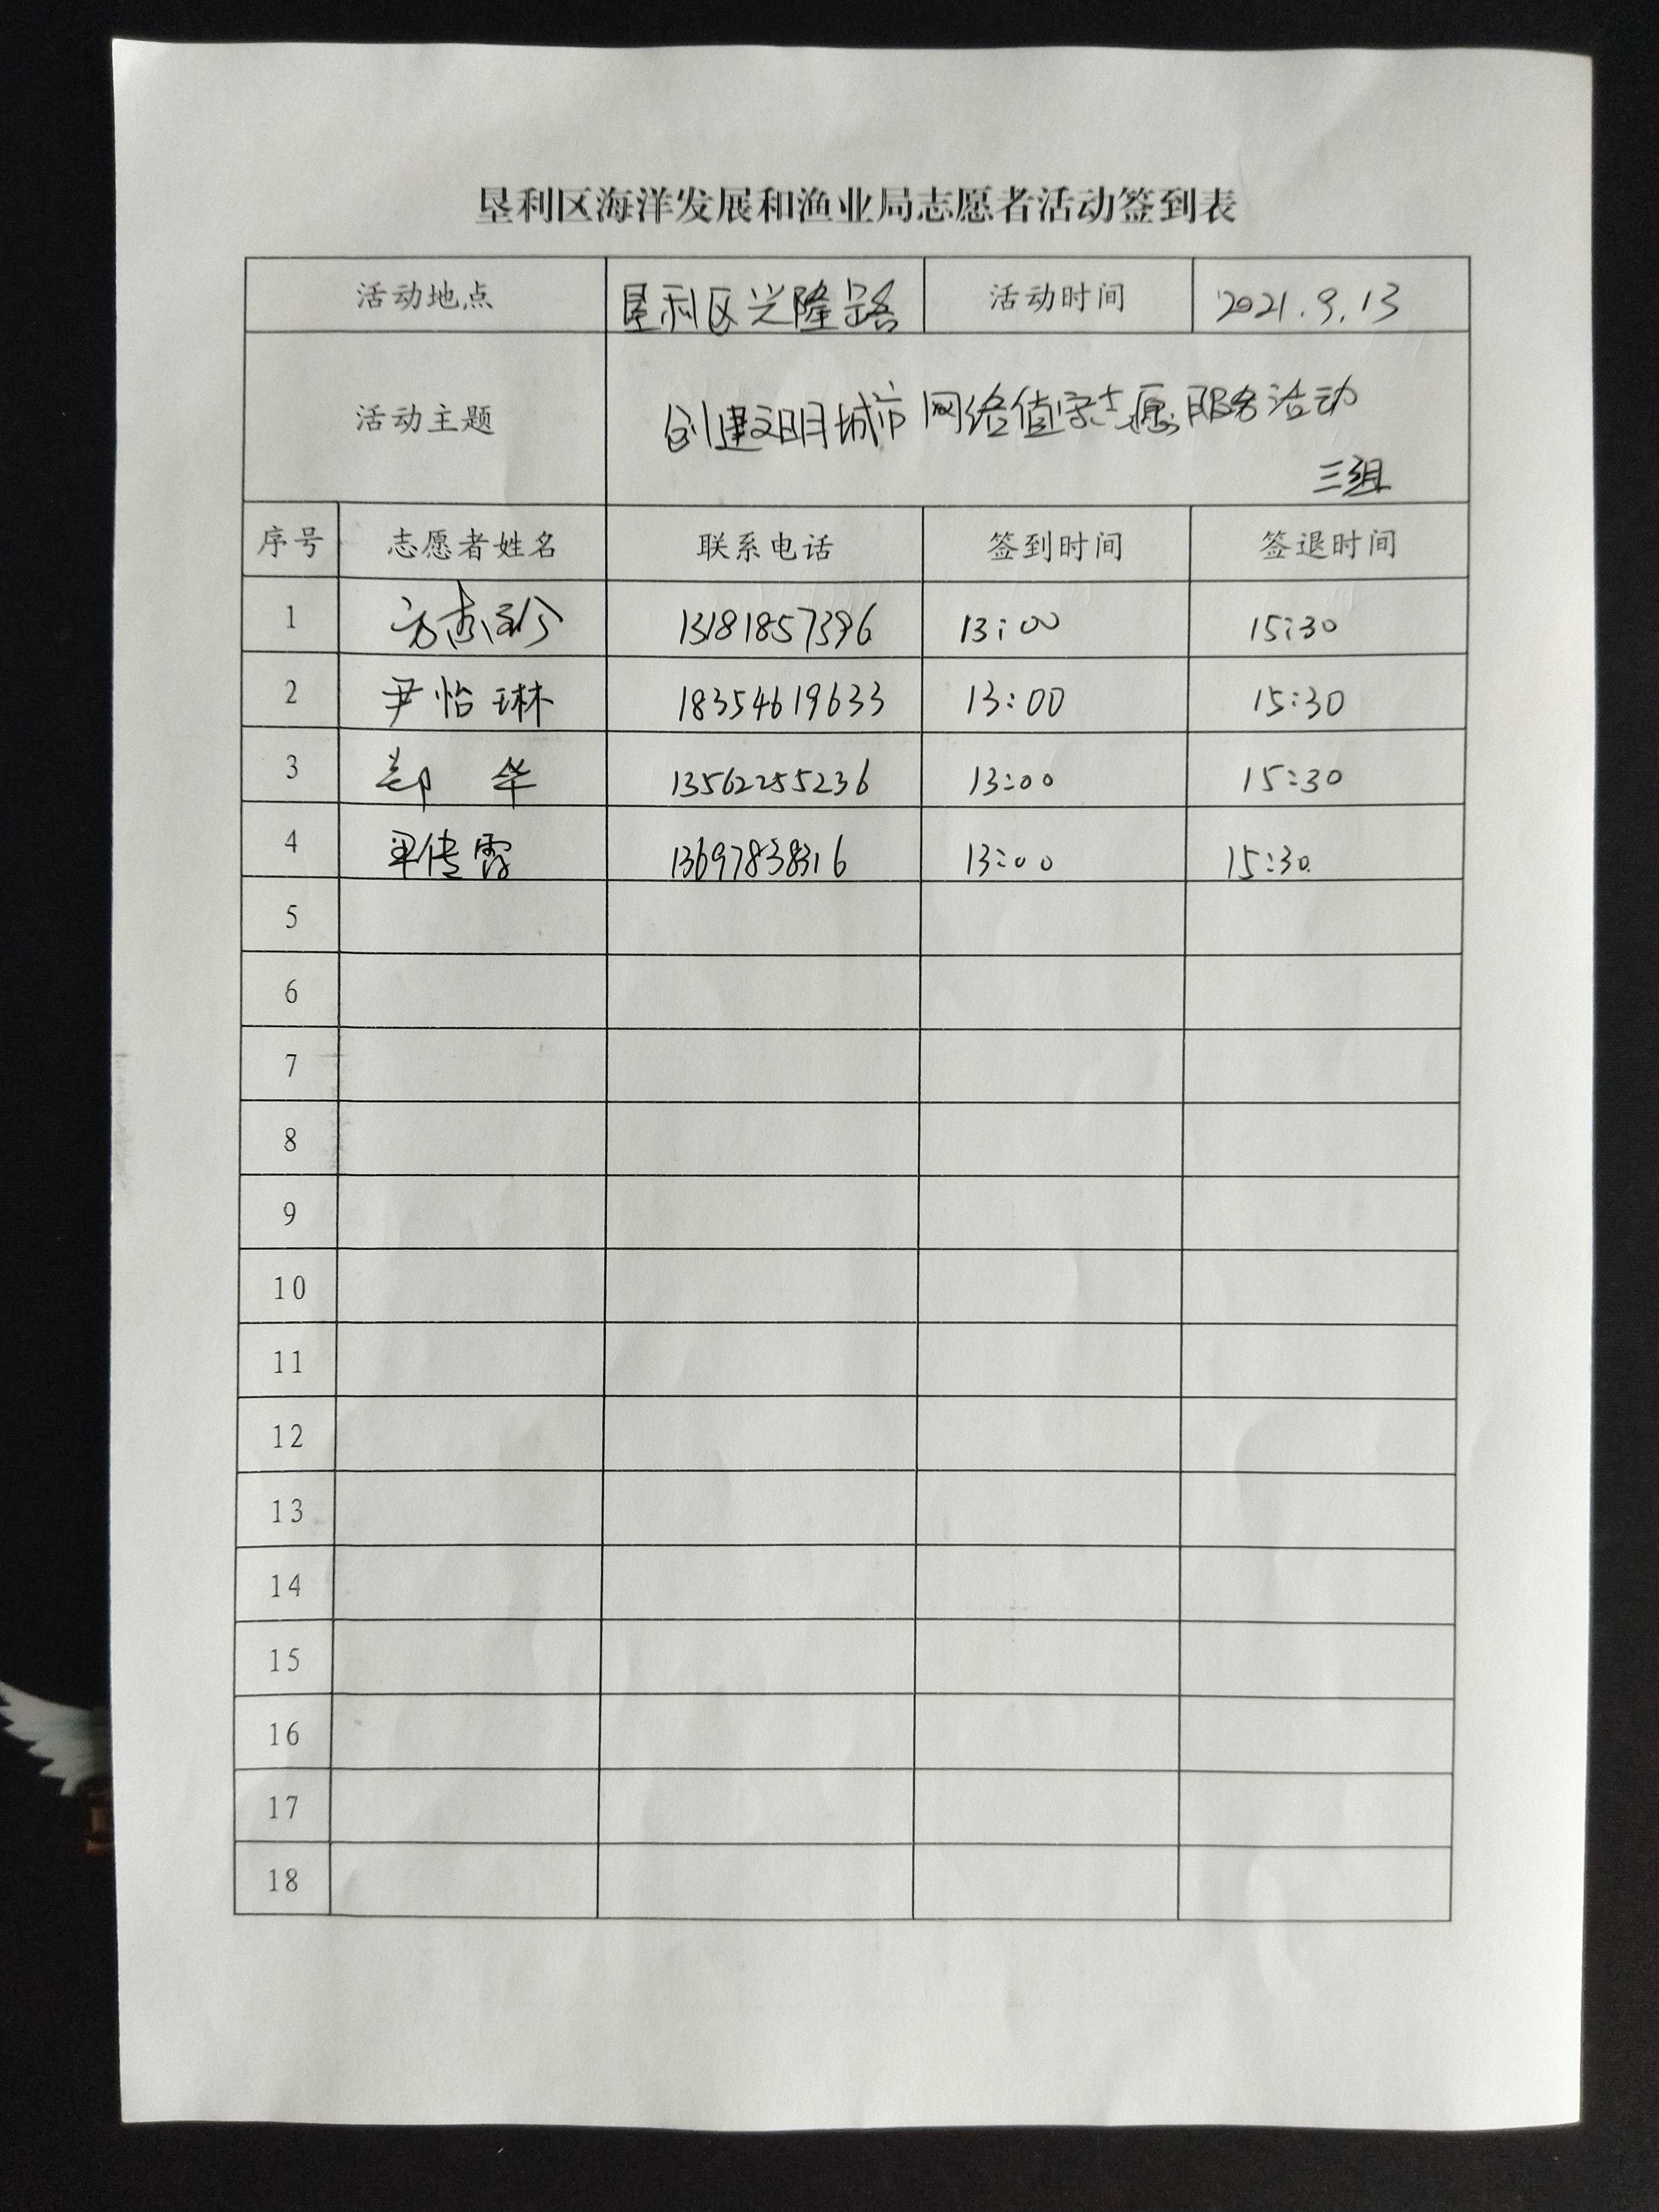 垦利区海洋发展和渔业局志愿者活动签到表
活动地点 垦利区兴隆路 活动时间 2021.9.13
活动主题 创建文明城市网络值守志愿服务活动
三组
序号 志愿者姓名 联系电话 签到时间 签退时间
1 13181857396 13:00 15:30
2 尹怡琳 18354619633 13:00 15:30
3 郑华 13562255236 13:00 15:30
4 传霞 13697838316 13:00 15:30
5
6
7
8
9
10
11
12
13
14
15
16
17
18